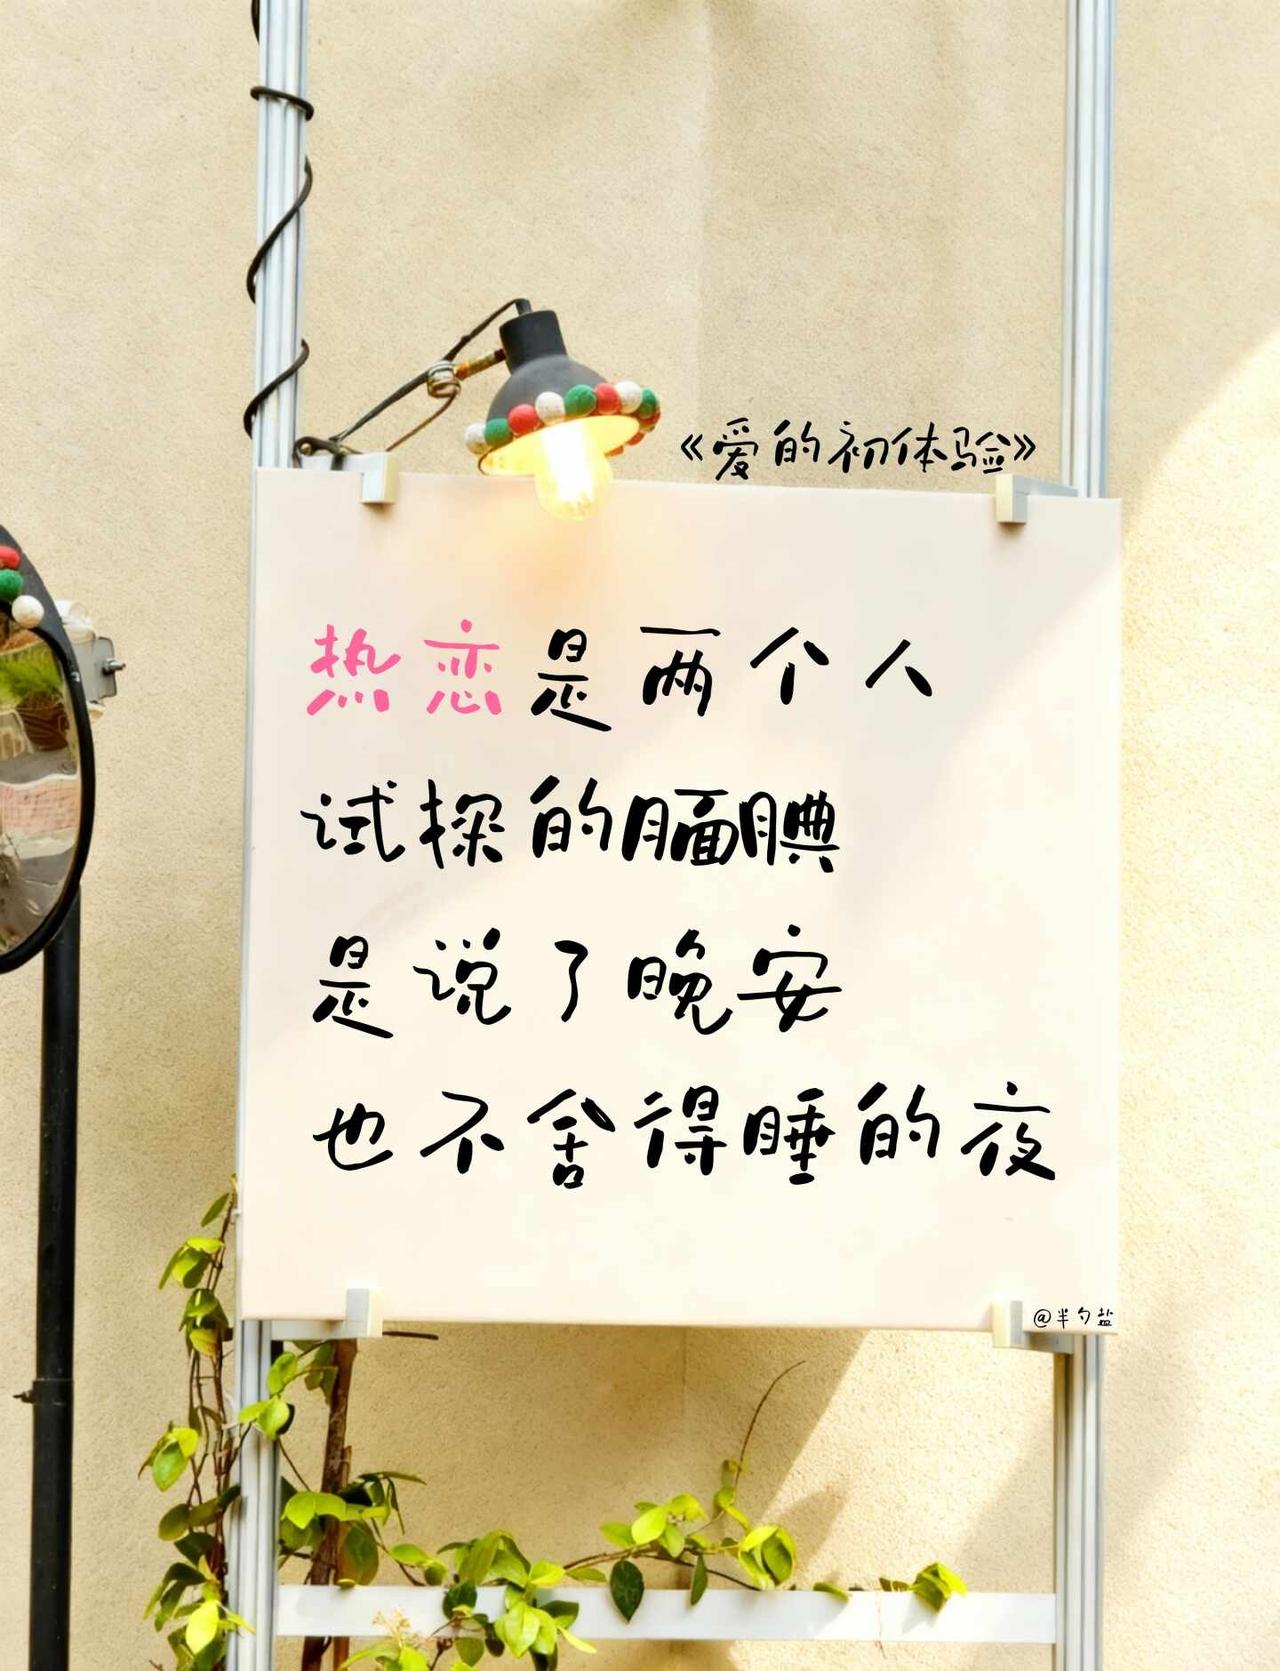 《爱的初体验》
热恋是两个人
试探的腼腆
是说了晚安
也不舍得睡的夜
@半勺盐